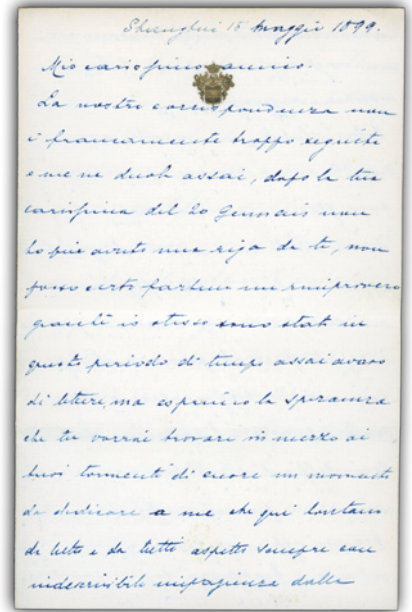 Shanghai 15 Maggio 1899.
Mio carissimo amico.
La nostra corrispondenza non
è francamente troppo seguita
e me ne duole assai, dopo la tua
carissima del 20 Gennaio non
ho più avuto una riga da te, non
posso certo fartene un rimprovero
giacchè io stesso sono stato in
questo periodo di tempo assai avaro
di lettere, ma esprimo la speranza
che tu vorrai trovare in mezzo ai
tuoi tormenti di cuore un momento
da dedicare a me che qui lontano
da tutto e da tutti aspetto sempre con
indescrivibile impazienza dalla